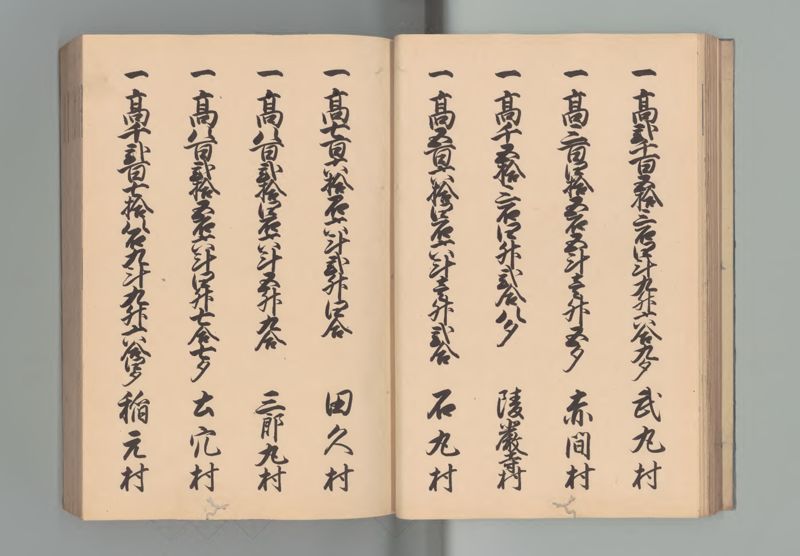 一 高弐千百五拾三石四斗九升六合九夕 武丸村
一 高三百四拾五石五斗壱升五夕 赤間村
一 高千五拾三石四升弐合八夕 陵巌寺村
一 高五百六拾四石六斗壱升弐合 石丸村
一 高七百六拾石六斗弐升四合 田久村
一 高八百弐拾四石六斗五升九合 三郎丸村
一 高八百弐拾五石六斗四升七合七夕 土穴村
一 高千弐百七拾八石九斗九升六合 稲元村